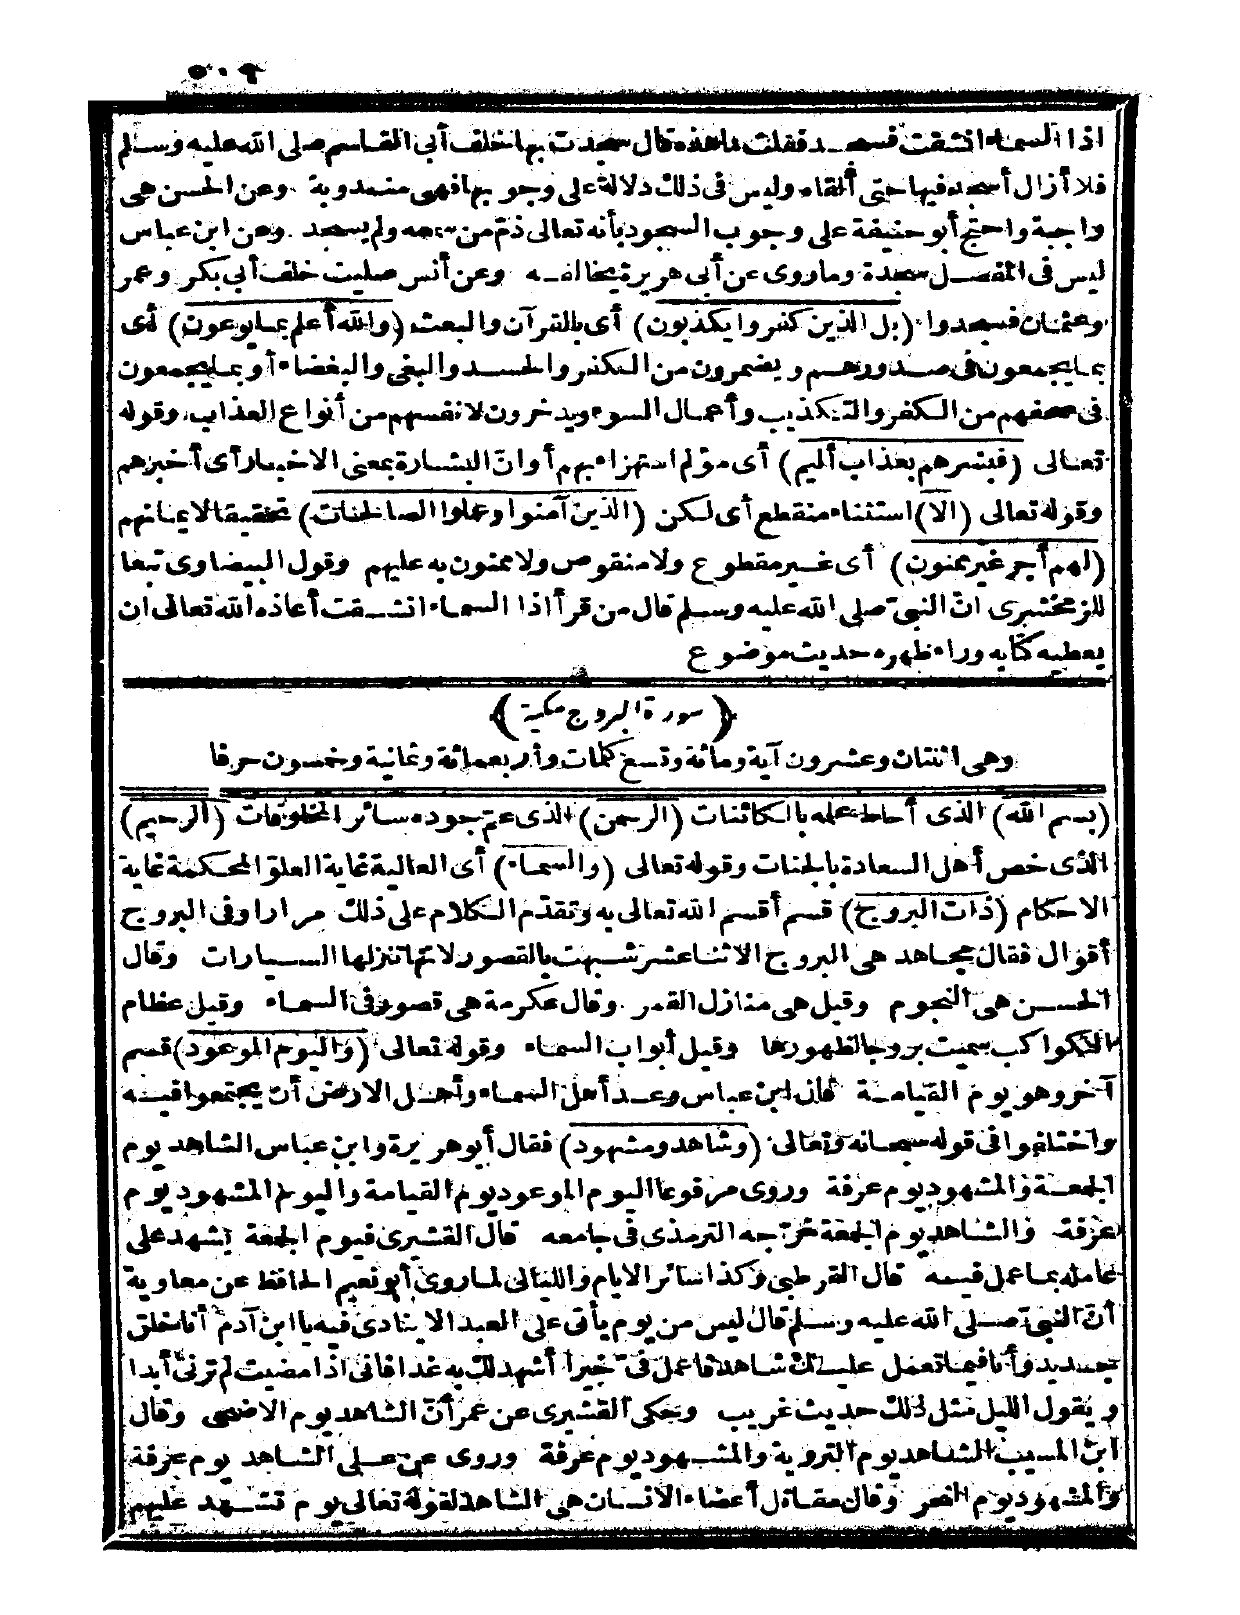 ٥٠٩
اذا السماء انشقت فسجد فقلت ما هذه قال سجدت بها خلف أبى القاسم صلى الله عليه وسلم
فلا أزال أسجد فيها حتى ألقاه وليس فى ذلك دلالة على وجوبها فهى مندوبة وعن الحسن هى
واجبة واحتج أبو حنيفة على وجوب السجود بأنه تعالى ذم من سمعه ولم يسجد وعن ابن عباس
ليس فى المفصل سجدة وما روى عن أبى هريرة يخالفه وعن أنس صليت خلف أبى بكر وعمر
وعثمان فسجدوا (بل الذين كفروا يكذبون) أى بالقرآن والبعث (والله أعلم بما يوعون) أى
بما يجمعون فى صدورهم ويضمرون من الكفر والحسد والبغى والبغضاء أو بما يجمعون
فى صحفهم من الكفر والتكذيب وأعمال السوء ويدخرون لانفسهم من أنواع العذاب وقوله
تعالى (فبشرهم بعذاب أليم) أى مؤلم استهزاء بهم أو انّ البشارة بمعنى الاخبار أى أخبرهم
وقوله تعالى (الا) استثناء منقطع أى لكن (الذين آمنوا وعملوا الصالحات) تحقيقا لايمانهم
(لهم أجر غير ممنون) أى غير مقطوع ولا منقوص ولا ممنون به عليهم وقول البيضاوى تبعا
للزمخشرى انّ النبىّ صلى الله عليه وسلم قال من قرأ اذا السماء انشقت أعاذه الله تعالى ان
يعطيه كتابه وراء ظهره حديث موضوع
﴿سورة البروج مكية﴾
وهى اثنتان وعشرون آية ومائة وتسع كلمات وأربعمائة وثمانية وخمسون حرفا
(بسم الله) الذى أحاط علمه بالكائنات (الرحمن) الذى عمّ جوده سائر المخلوقات (الرحيم)
الذى خص أهل السعادة بالجنات وقوله تعالى (والسماء) أى العالية غاية العلوّ المحكمة غاية
الاحكام (ذات البروج) قسم أقسم الله تعالى به وتقدّم الكلام على ذلك مرارا وفى البروج
أقوال فقال مجاهد هى البروج الاثنا عشر شبهت بالقصور لانها تنزلها السيارات وقال
الحسن هى النجوم وقيل هى منازل القمر وقال عكرمة هى قصور فى السماء وقيل عظام
الكواكب سميت بروجا لظهورها وقيل أبواب السماء وقوله تعالى (واليوم الموعود) قسم
آخر وهو يوم القيامة قال ابن عباس وعد أهل السماء وأهل الارض أن يجتمعوا فيه
واختلفوا فى قوله سبحانه وتعالى (وشاهد ومشهود) فقال أبو هريرة وابن عباس الشاهد يوم
الجمعة والمشهود يوم عرفة وروى مرفوعا اليوم الموعود يوم القيامة واليوم المشهود يوم
عرفة والشاهد يوم الجمعة خرّجه الترمذى فى جامعه قال القشيرى فيوم الجمعة يشهد على
عامله بما عمل فيه قال القرطبى وكذا سائر الايام والليالى لما روى أبو نعيم الحافظ عن معاوية
أنّ النبىّ صلى الله عليه وسلم قال ليس من يوم يأتى على العبد الا ينادى فيه يا ابن آدم أنا خلق
جديد وأنا فيما تعمل عليك شاهد فاعمل فىّ خيرا أشهد لك به غدا فانى اذا مضيت لم ترنى أبدا
ويقول الليل مثل ذلك حديث غريب وحكى القشيرى عن عمر أنّ الشاهد يوم الاضحى وقال
ابن المسيب الشاهد يوم التروية والمشهود يوم عرفة وروى عن على الشاهد يوم عرفة
والمشهود يوم النحر وقال مقاتل أعضاء الانسان هى الشاهد لقوله تعالى يوم تشهد عليهم